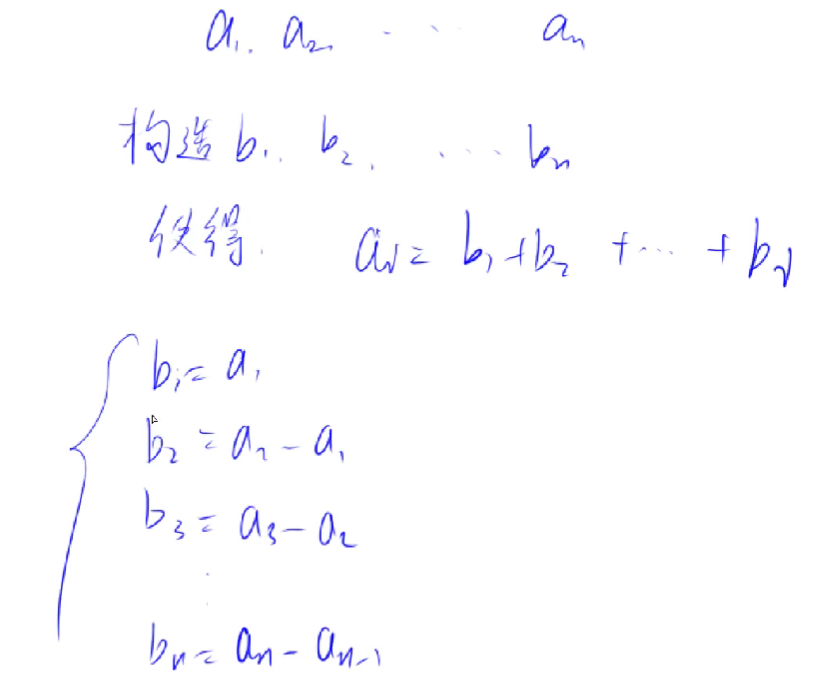 a₁. a₂. ... aₙ
构造 b₁. b₂. ... bₙ
使得. aᵢ = b₁ + b₂ + ... + bᵢ
b₁ = a₁
b₂ = a₂ - a₁
b₃ = a₃ - a₂
bₙ = aₙ - aₙ₋₁